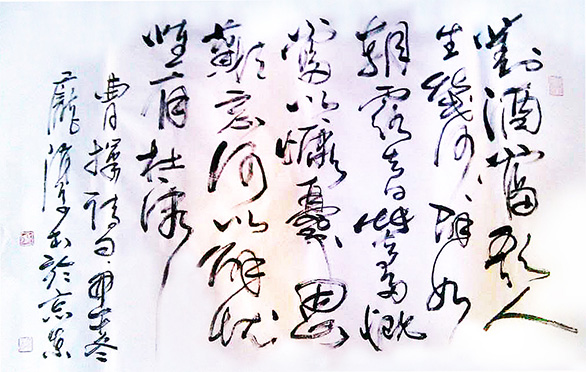 對酒當歌人
生幾何譬如
朝露去日苦多慨
當以慷憂思
難忘何以解忧
唯有杜康
曹操詩句冬
龐书於京